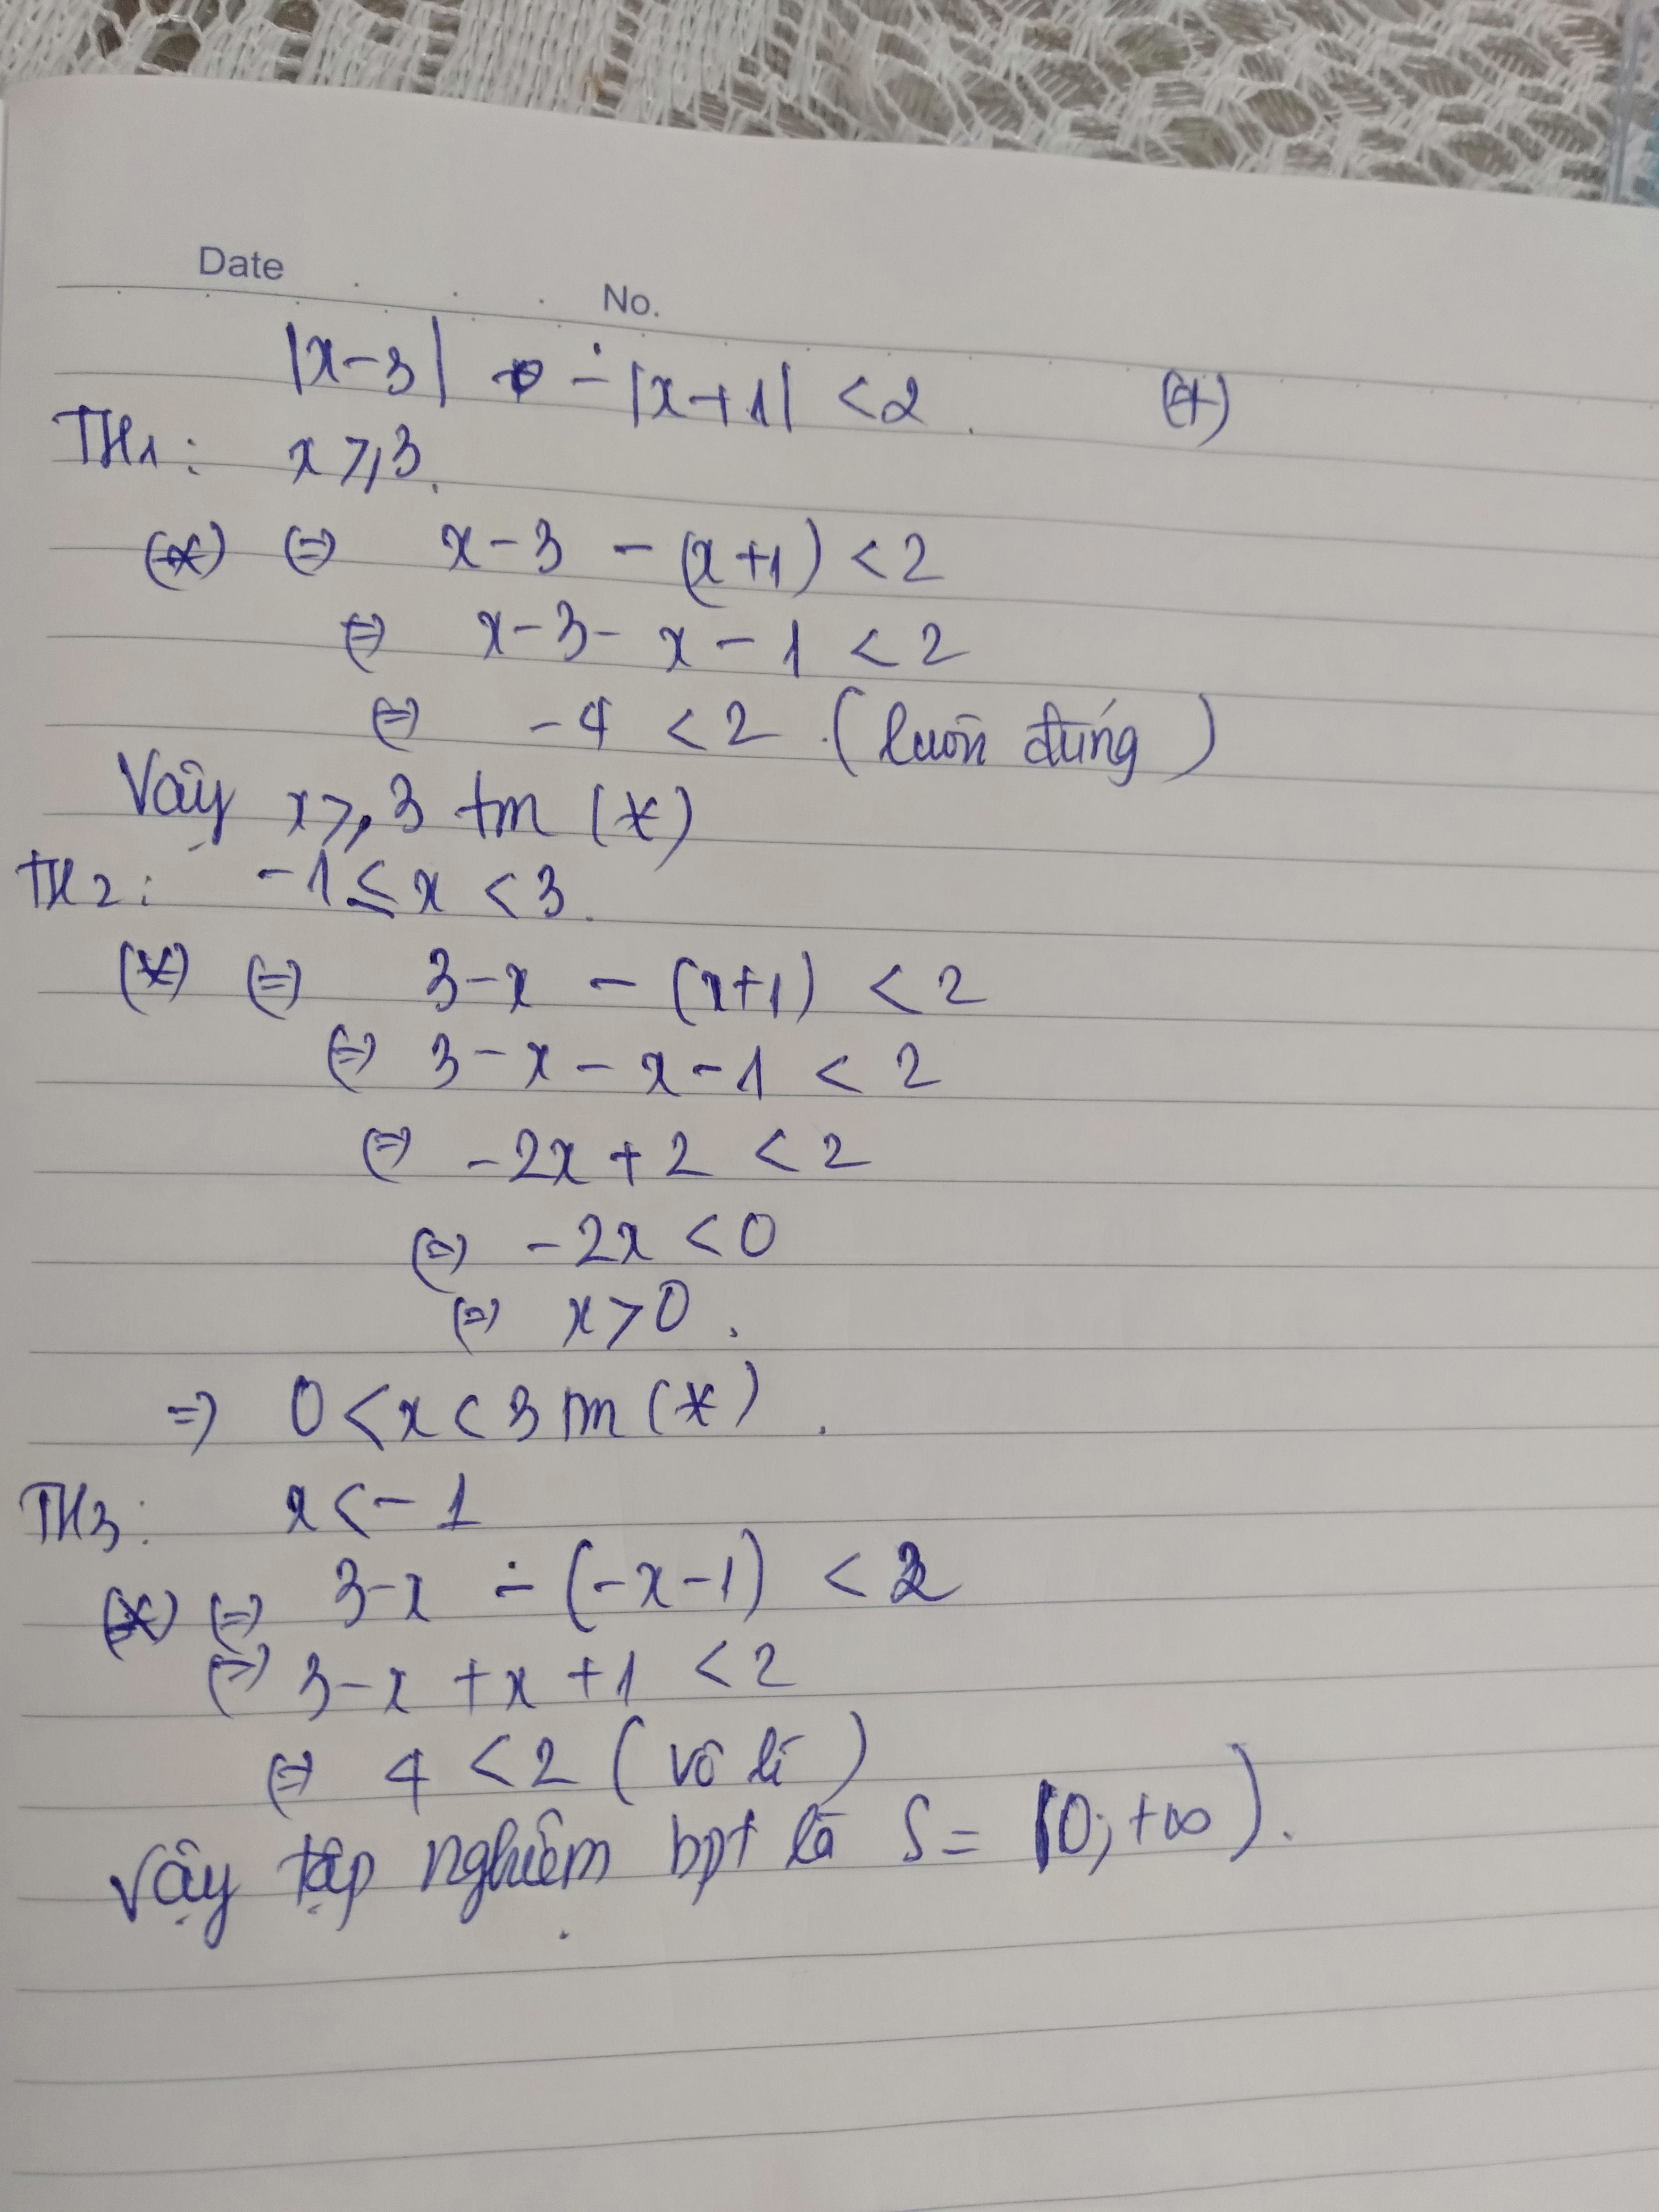 Date
No.
|x-3| - |x+1| < 2. (*)
TH1: x ≥ 3.
(*) (=) x-3 - (x+1) < 2
(=) x-3- x - 1 < 2
(=) -4 < 2 (luôn đúng)
Vậy x ≥ 3 tm (*)
TH2: -1 ≤ x < 3.
(*) (=) 3-x - (x+1) < 2
(=) 3-x-x-1 < 2
(=) -2x+2 < 2
(=) -2x < 0
(=) x > 0.
=) 0 < x < 3 tm (*).
TH3: x < -1
(*) (=) 3-x - (-x-1) < 2
(=) 3-x+x+1 < 2
(=) 4 < 2 (vô lí)
Vậy tập nghiệm bpt là S = (0; +∞).